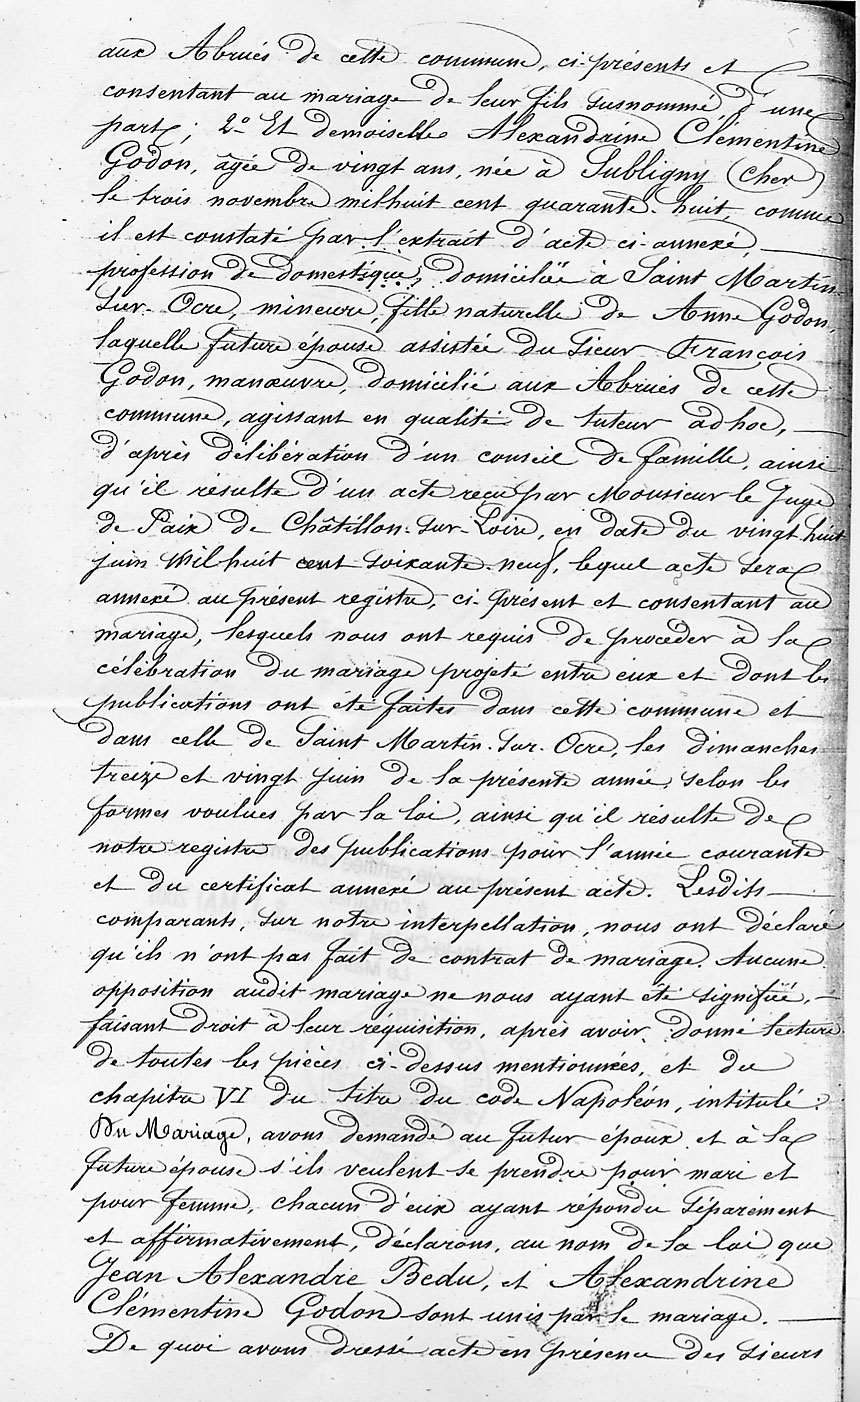 aux Abrués de cette commune, ci-présents et
consentant au mariage de leur fils susnommé, d'une
part; 2º Et demoiselle Alexandrine Clémentine
Godon, âgée de vingt ans, née à Subligny (Cher)
le trois novembre mil huit cent quarante-huit, comme
il est constaté par l'extrait d'acte ci-annexé,
profession de domestique, domiciliée à Saint Martin-
sur-Ocre, mineure, fille naturelle de Anne Godon,
laquelle future épouse assistée du sieur François
Godon, manœuvre, domicilié aux Abrués de cette
commune, agissant en qualité de tuteur ad hoc,
d'après délibération d'un conseil de famille, ainsi
qu'il résulte d'un acte reçu par Monsieur le Juge
de Paix de Châtillon-sur-Loire, en date du vingt huit
juin mil huit cent soixante-neuf, lequel acte sera
annexé au présent registre, ci-présent et consentant au
mariage, lesquels nous ont requis de procéder à la
célébration du mariage projeté entre eux et dont les
publications ont été faites dans cette commune et
dans celle de Saint Martin-sur-Ocre, les dimanches
treize et vingt juin de la présente année, selon les
formes voulues par la loi, ainsi qu'il résulte de
notre registre des publications pour l'année courante
et du certificat annexé au présent acte. Lesdits
comparants, sur notre interpellation, nous ont déclaré
qu'ils n'ont pas fait de contrat de mariage. Aucune
opposition audit mariage ne nous ayant été signifiée,
faisant droit à leur réquisition, après avoir donné lecture
de toutes les pièces ci-dessus mentionnées, et du
chapitre VI du titre du code Napoléon, intitulé:
Du Mariage, avons demandé au futur époux et à la
future épouse s'ils veulent se prendre pour mari et
pour femme, chacun d'eux ayant répondu séparément
et affirmativement, déclarons, au nom de la loi que
Jean Alexandre Bedu, et Alexandrine
Clémentine Godon sont unis par le mariage.
De quoi avons dressé acte en présence des sieurs